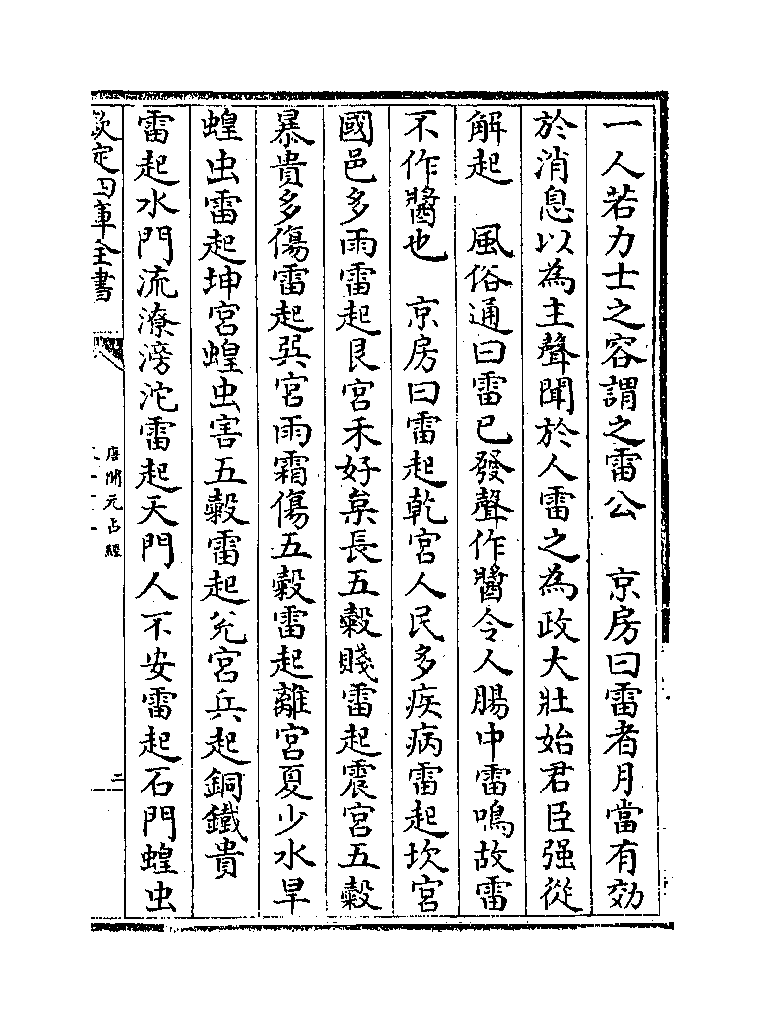 一人若力士之容謂之雷公　京房曰雷者月當有効
於消息以為主聲聞於人雷之為政大壯始君臣强從
解起　風俗通曰雷已發聲作醬令人腸中雷鳴故雷
不作醬也　京房曰雷起乾宮人民多疾病雷起坎宮
國邑多雨雷起艮宮禾好枲長五糓賤雷起震宮五糓
暴貴多傷雷起巽宮雨霜傷五糓雷起離宮夏少水旱
蝗虫雷起坤宮蝗虫害五糓雷起兊宮兵起銅鐵貴
雷起水門流潦滂沱雷起天門人不安雷起石門蝗虫
欽定四庫全書
唐開元占經
二